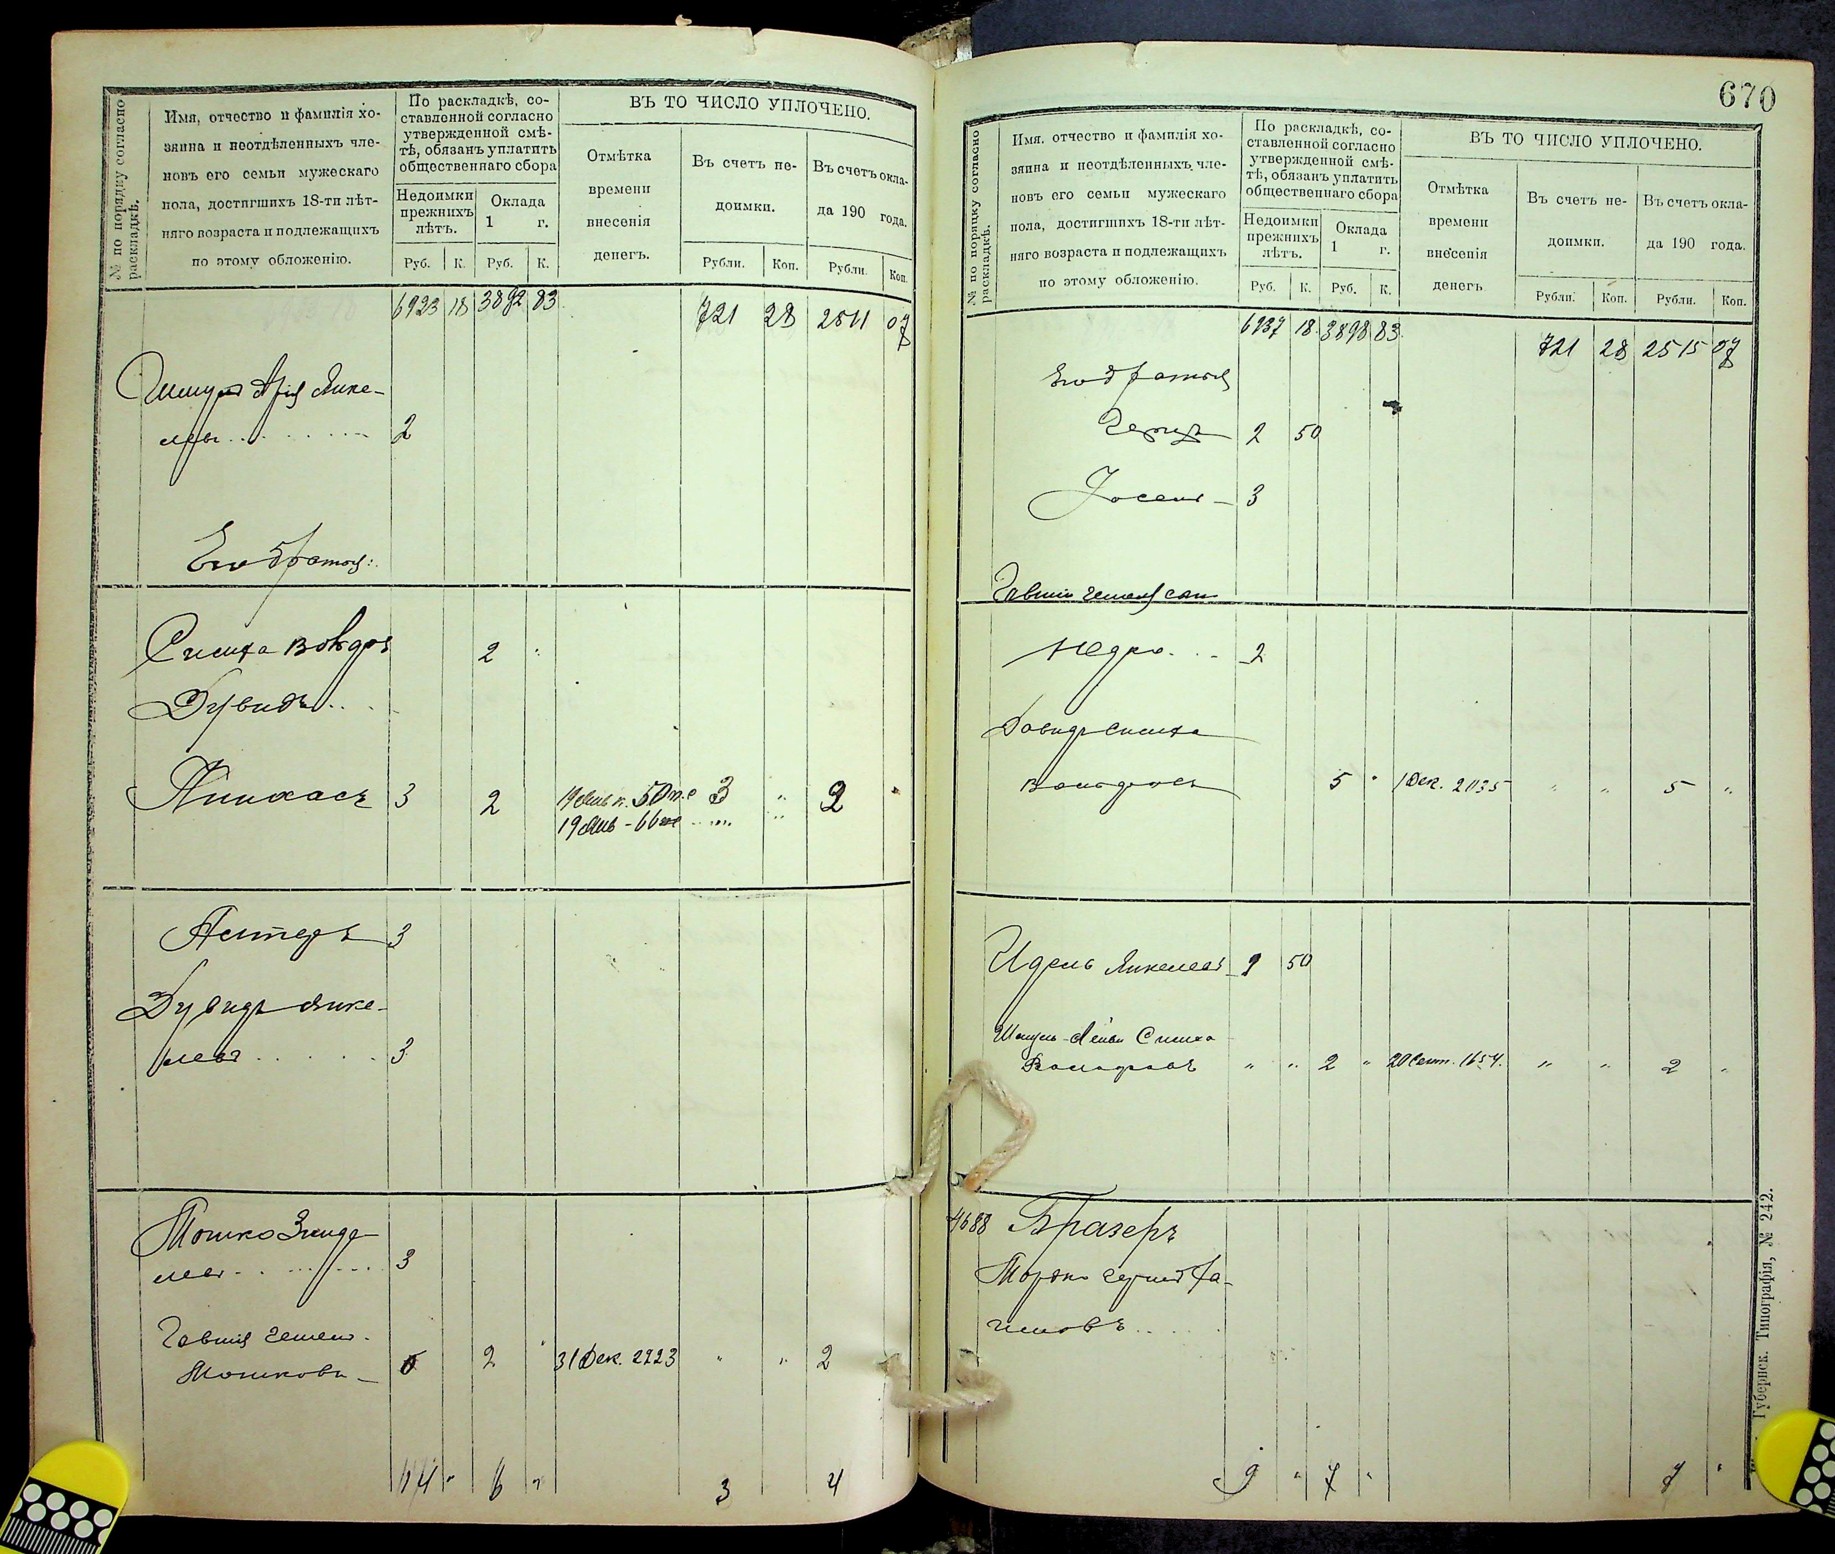 № по порядку согласно
раскладкѣ.
Имя, отчество и фамилія хо-
зяина и неотдѣленныхъ чле-
новъ его семьи мужескаго
пола, достигшихъ 18-ти лѣт-
няго возраста и подлежащихъ
по этому обложенію.
По раскладкѣ, со-
ставленной согласно
утвержденной смѣ-
тѣ, обязанъ уплатить
общественнаго сбора
Недоимки
прежнихъ
лѣтъ.
Оклада
1 г.
Руб. К. Руб. К.
ВЪ ТО ЧИСЛО УПЛОЧЕНО.
Отмѣтка
времени
внесенія
денегъ.
Въ счетъ не-
доимки.
Въ счетъ окла-
да 190 года.
Рубли. Коп. Рубли. Коп.
6923 18 3892 83 721 28 2511 07
Шмуль Арія Янке-
левъ 2
Его братья:
Симха Вольфъ 2
Дувидъ
Пинхасъ 3 2 3 " 2 "
Дувидъ Янке-
левъ 3
Мошко Зинде-
левъ 3
Мошковъ 6 2 31 Дек. 2223 " " 2
14 " 6 " 3 4
670
№ по порядку согласно
раскладкѣ.
Имя, отчество и фамилія хо-
зяина и неотдѣленныхъ чле-
новъ его семьи мужескаго
пола, достигшихъ 18-ти лѣт-
няго возраста и подлежащихъ
по этому обложенію.
По раскладкѣ, со-
ставленной согласно
утвержденной смѣ-
тѣ, обязанъ уплатить
общественнаго сбора
Недоимки
прежнихъ
лѣтъ.
Оклада
1 г.
Руб. К. Руб. К.
ВЪ ТО ЧИСЛО УПЛОЧЕНО.
Отмѣтка
времени
внесенія
денегъ
Въ счетъ не-
доимки.
Въ счетъ окла-
да 190 года.
Рубли. Коп. Рубли. Коп.
6937 18 3898 83 721 28 2515 07
Его братья
Герцъ 2 50
Іосель 3
2
Давидъ Симха
Вольфовъ 5 " 1 Дек. 2035 " " 5 "
Идель Янкелевъ 2 50
Шмуль-Лейви Симха
Вольфовъ " " 2 " 20 Сент. 1654. " " 2 "
4688 Бразеръ
9 " 7 " 7 "
Губернск. Типографія, № 242.